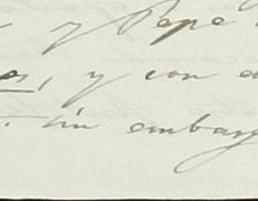 y Pepe
, y con
sin embarg